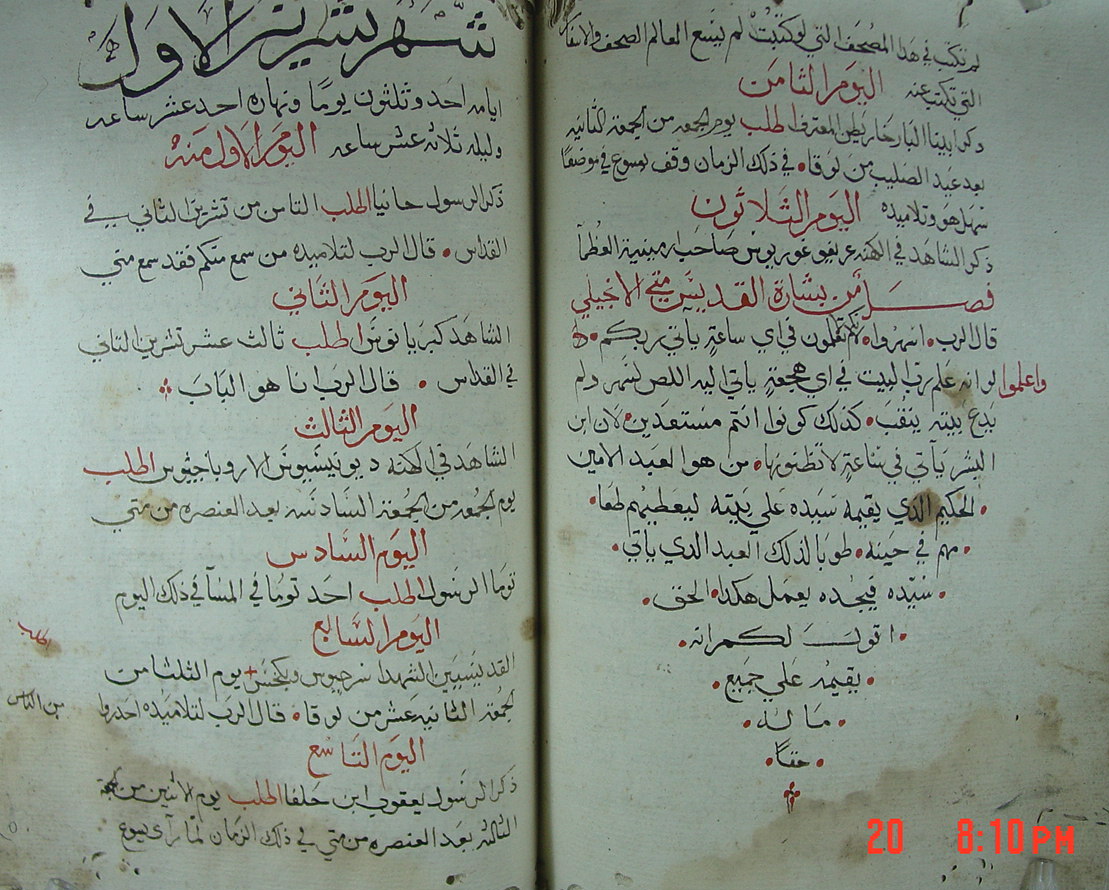 لم تكتب في هذا المصحف التي لو كتبت لم يسع العالم الصحف والاسفار
التي تكتب عنه اليوم الثامن
ذكر ابينا البار المعترف اطلب يوم الجمعه من الجمعة الثانيه
بعد عيد الصليب من لوقا • في ذلك الزمان وقف يسوع في موضع
سهل هو وتلاميذه اليوم الثلاثون
ذكر الشاهد في الكهنه غريغوريوس صاحب ارمينية العظما
فصل من بشارة القديس متي الانجيلي
قال الرب • اسهروا • لانكم ما تعلمون في اي ساعة ياتي ربكم •
واعلموا لو انه علم رب البيت في اي هجعة ياتي اليه اللص لسهر ولم
يدع بيته ينقب • كذلك كونوا انتم مستعدين • لان ابن
البشر ياتي في ساعة لا تظنونها • من هو العبد الامين
• الحكيم الذي يقيمه سيده علي بيته ليعطيهم طعا •
• مهم في حينه • طوبا لذلك العبد الذي ياتي •
• سيده فيجده يعمل هكذا • الحق •
• اقول لكم انه •
• يقيمه علي جميع •
• ما له •
• حقاً •
شهر تشرين الاول
ايامه احد وثلثون يوما ونهاره احد عشر ساعه
وليله ثلاثه عشر ساعه اليوم الاول منه
ذكر الرسول حانيا اطلب الثامن من تشرين الثاني في
القداس • قال الرب لتلاميذه من سمع منكم فقد سمع مني
اليوم الثاني
الشاهد كبريانوس اطلب ثالث عشر تشرين الثاني
في القداس • قال الرب انا هو الباب
اليوم الثالث
الشاهد في الكهنه ديونيسيوس الاروباجيوس اطلب
يوم الجمعه من الجمعة السادسه بعد العنصره من متي
اليوم السادس
توما الرسول اطلب احد توما في المسا في ذلك اليوم
اليوم السابع
اطلب
القديسين الشهدا سرجيوس وبكخس + يوم الثلثا من
الجمعة الثانيه عشر من لوقا • قال الرب لتلاميذه احذروا
من الناس
اليوم التاسع
ذكر الرسول يعقوب ابن حلفا اطلب يوم الاثنين من الجمعة
الثالثه بعد العنصره من متي في ذلك الزمان لما رآي يسوع
20 8:10 PM